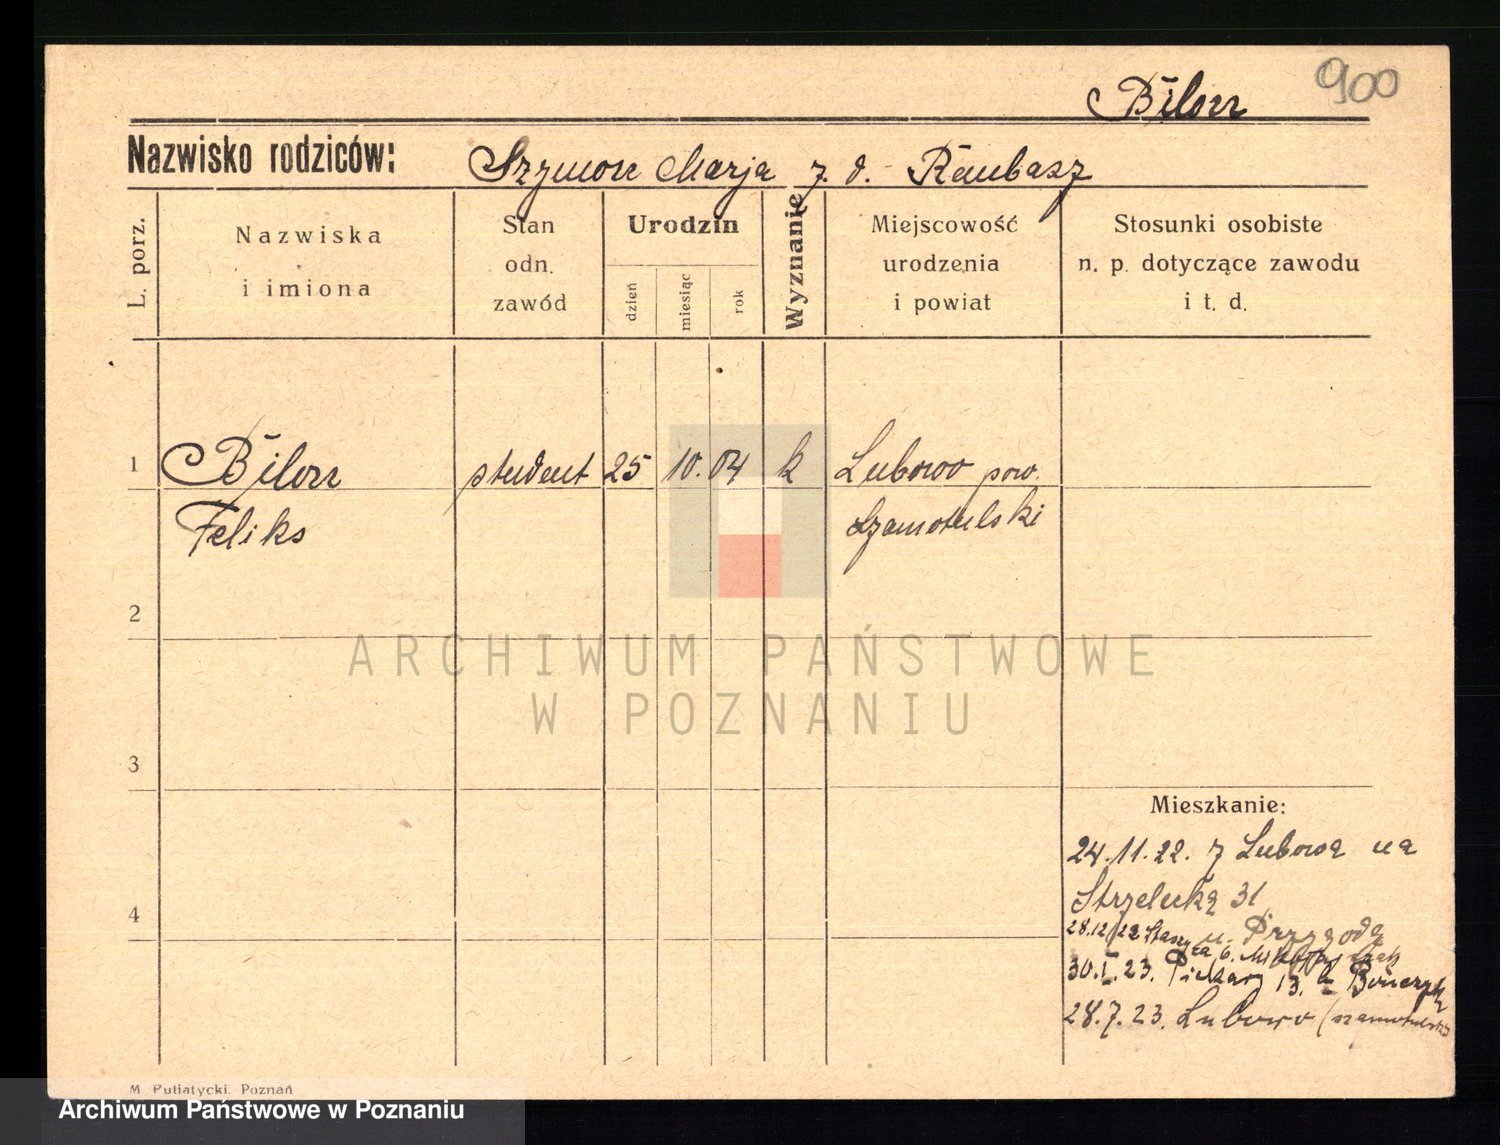 900
Bilon
Nazwisko rodziców: Szymon Marja z. d. Raubasz
L. porz.
Nazwiska
i imiona
Stan
odn.
zawód
Urodzin
dzień
miesiąc
rok
Wyznanie
Miejscowość
urodzenia
i powiat
Stosunki osobiste
n. p. dotyczące zawodu
i t. d.
1 Bilon student 25 10. 04 k Lubowo pow.
Feliks Szamotulski
2
3
4
Mieszkanie:
24.11.22. z Lubowa na
Strzelecką 31
u. Przygodą
28.12/22 Staszyca 6.
30.I.23. Piekary 13.
28.7.23. Lubowo (szamotulski
M. Putiatycki. Poznań
ARCHIWUM PAŃSTWOWE
W POZNANIU
Archiwum Państwowe w Poznaniu